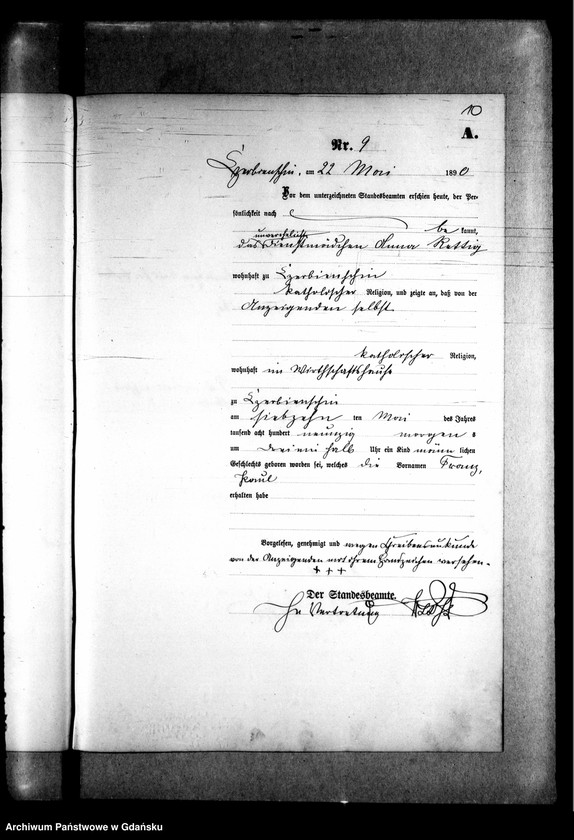 10
A.
Nr. 9
Czerbienschin, am 22 Mai 1890
Vor dem unterzeichneten Standesbeamten erschien heute, der Per-
sönlichkeit nach
be kannt,
unverehelichte
das Dienstmädchen Anna Rettig
wohnhaft zu Czerbienschin
katholischer Religion, und zeigte an, daß von der
Anzeigenden selbst
katholischer Religion,
wohnhaft im Wirthschaftshause
zu Czerbienschin
am siebzehn ten Mai des Jahres
tausend acht hundert neunzig morgen s
um dreieinhalb Uhr ein Kind männ lichen
Geschlechts geboren worden sei, welches die Vornamen Franz,
Paul
erhalten habe
Vorgelesen, genehmigt und wegen Schreibensunkunde
von der Anzeigenden mit ihrem Handzeichen versehen.
+ + +
Der Standesbeamte.
In Vertretung
Archiwum Państwowe w Gdańsku